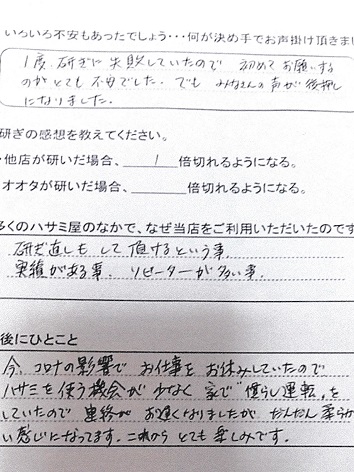 いろいろ不安もあったでしょう・・・何が決め手でお声掛け頂きまし
1度、研ぎに失敗していたので 初めてお願いする
のがとても不安でした。でも みなさんの声が後押し
になりました。
研ぎの感想を教えてください。
・他店が研いだ場合、 1 倍切れるようになる。
オオタが研いだ場合、 倍切れるようになる。
多くのハサミ屋のなかで、なぜ当店をご利用いただいたのです
研ぎ直しもして頂けるという事。
実績がある事、リピーターが多い事。
後にひとこと
今、コロナの影響で お仕事を お休みしていたので
ハサミを使う機会が 少なく 家で"慣らし運転"を
していたので 連絡が お遅くなりましたが だんだん柔らか
い感じになってます。これから とても 楽しみです。